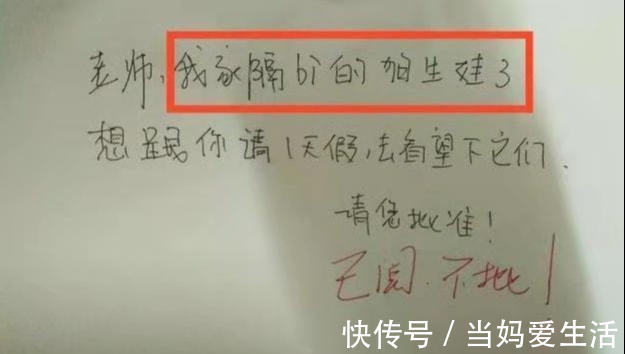 老师，我家隔介的加生娃了
想跟你请1天假，去看望下它们.
请您批准！
已阅.不批！
快传号/当妈爱生活